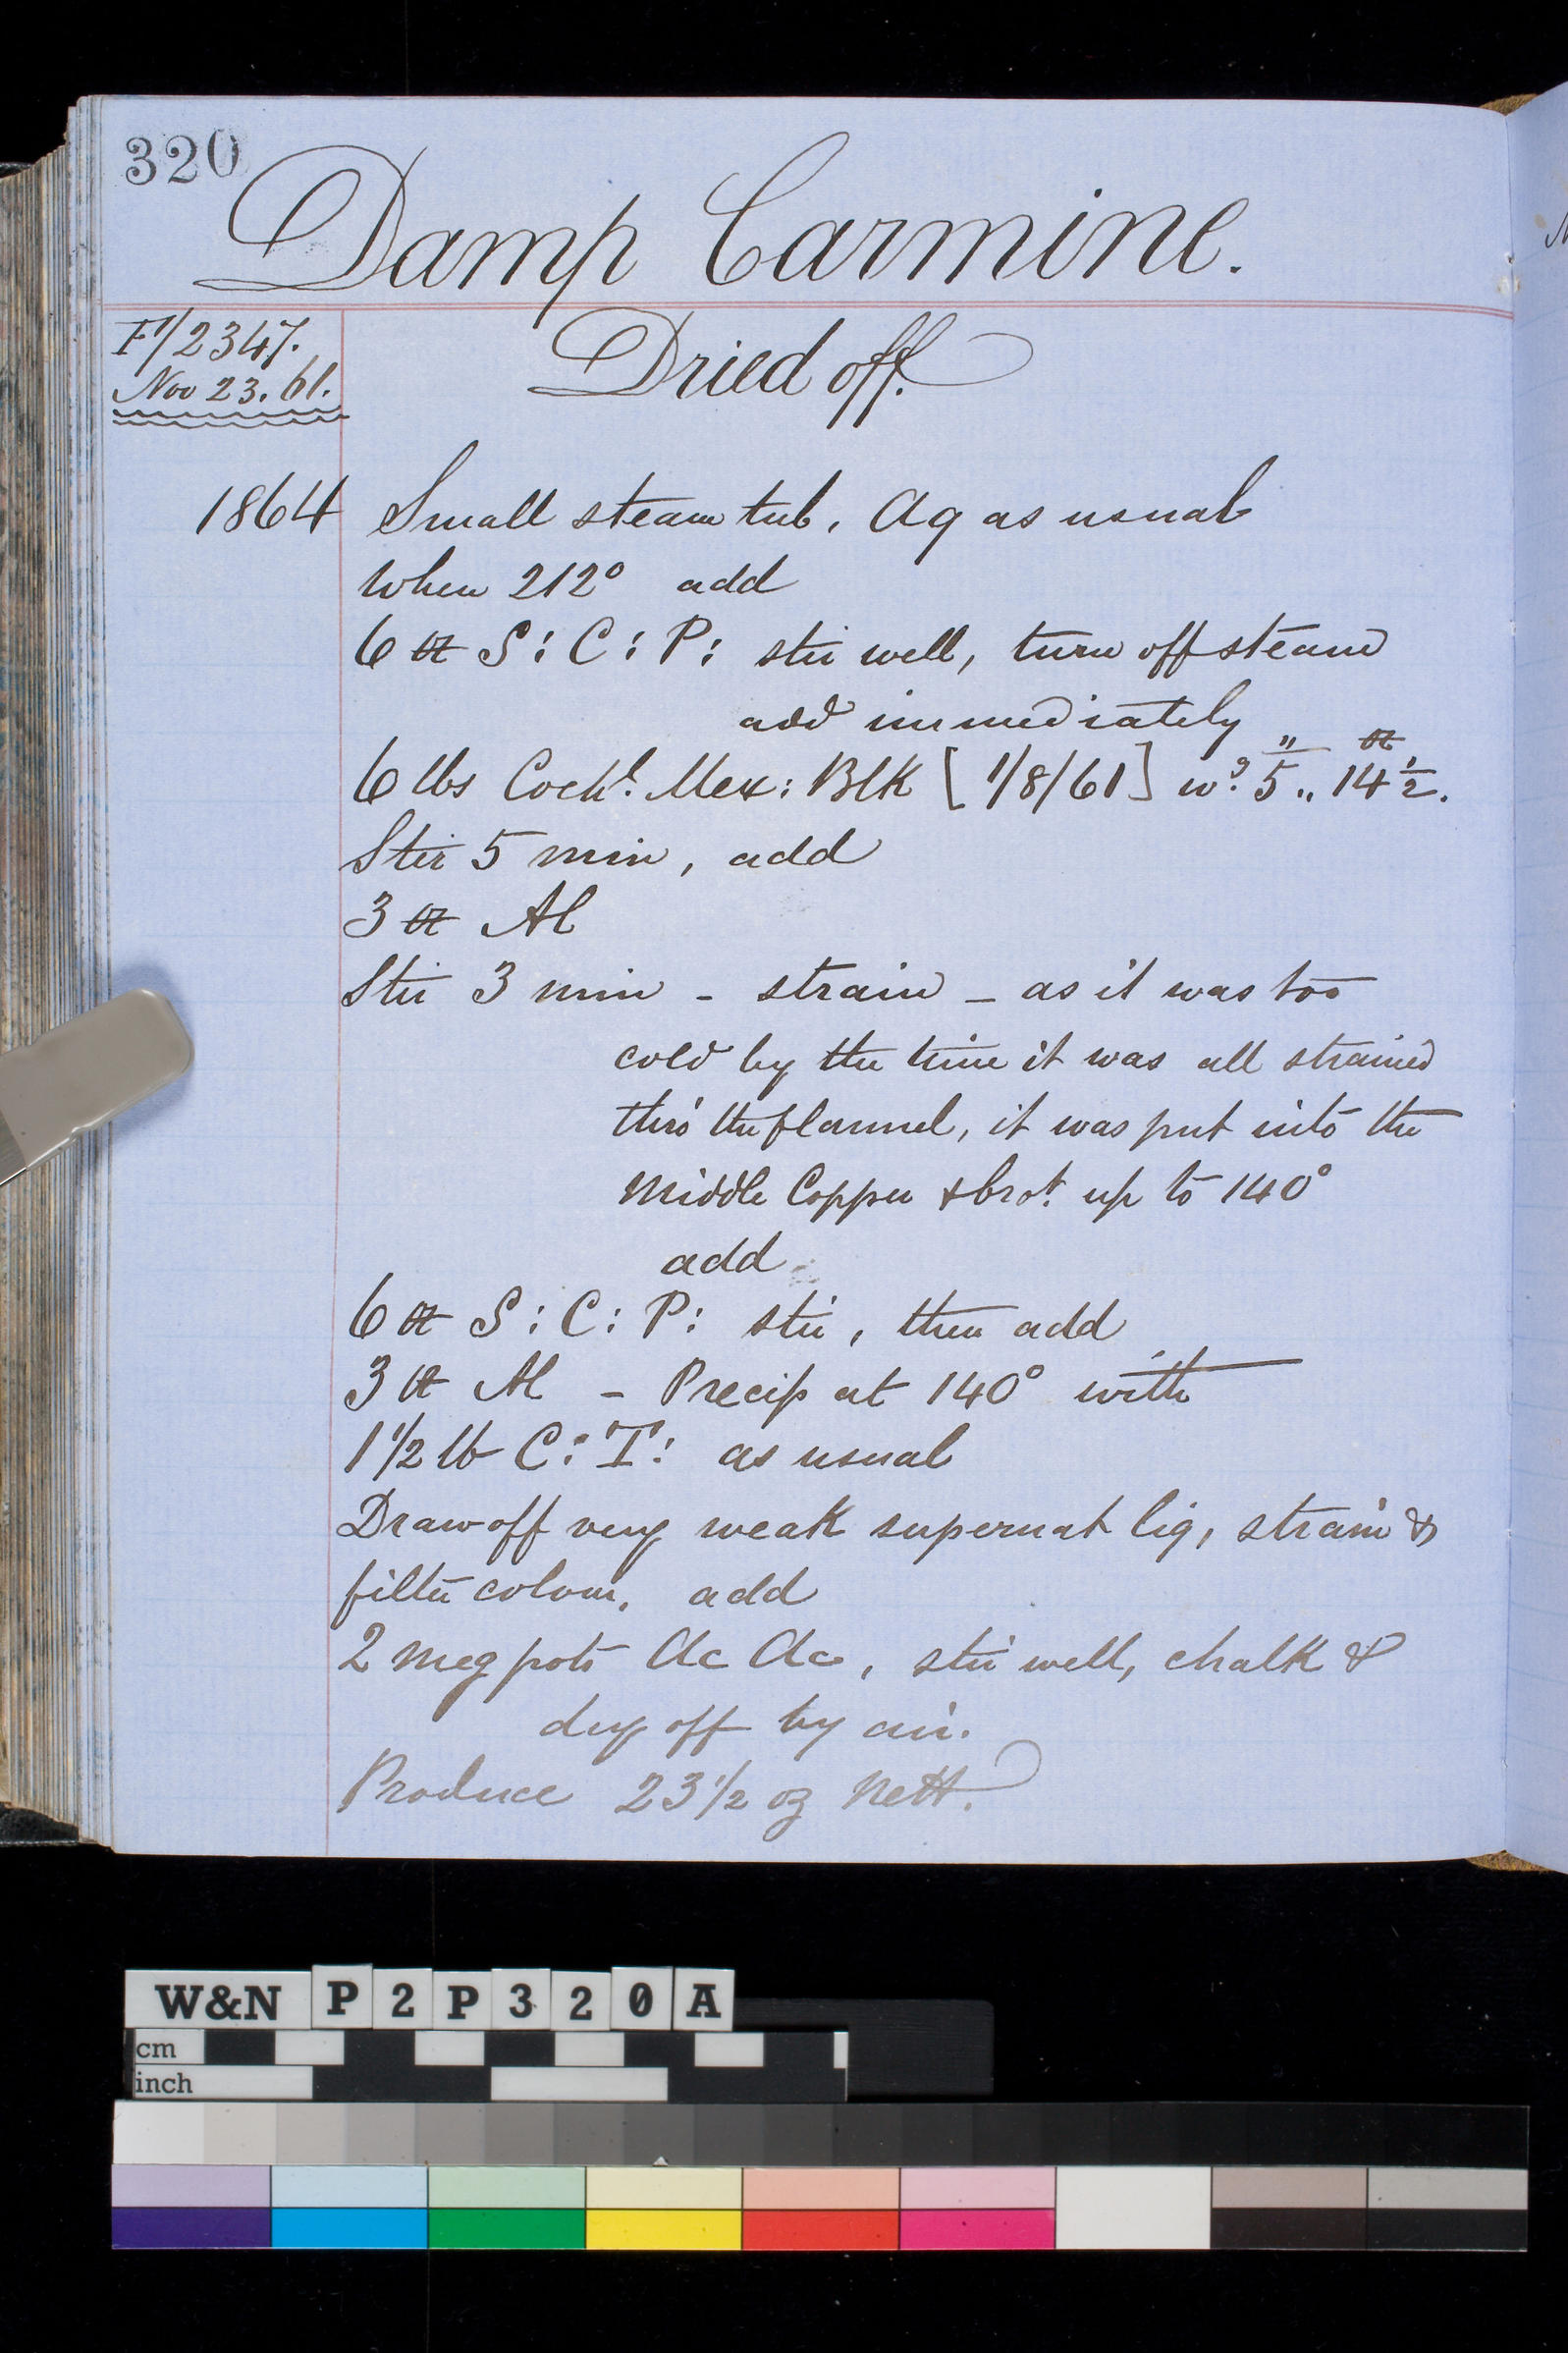 320
Damp Carmine.
F/2347.
Nov 23. 61.
Dried off.
1864 Small steam tub, Aq as usual
When 212° add
6 oz S: C: P: stir well, turn off steam
add immediately
6 lbs Cochl. Mex: Blk [1/8/61] wg. 5 lb „ 14 1/2 oz.
Stir 5 min, add
3 oz Al
Stir 3 min - strain - as it was too
cold by the time it was all strained
thro' the flannel, it was put into the
Middle Copper & brot. up to 140°
add
6 oz S: C: P: stir, then add
3 oz Al - Precip at 140° with
1 1/2 lb C: T: as usual
Draw off very weak supernat liq, strain &
filter colour, add
2 meg pots Ac Ac, stir well, chalk &
dry off by air.
Produce 23 1/2 oz Nett.
W&N P2P320A
cm
inch